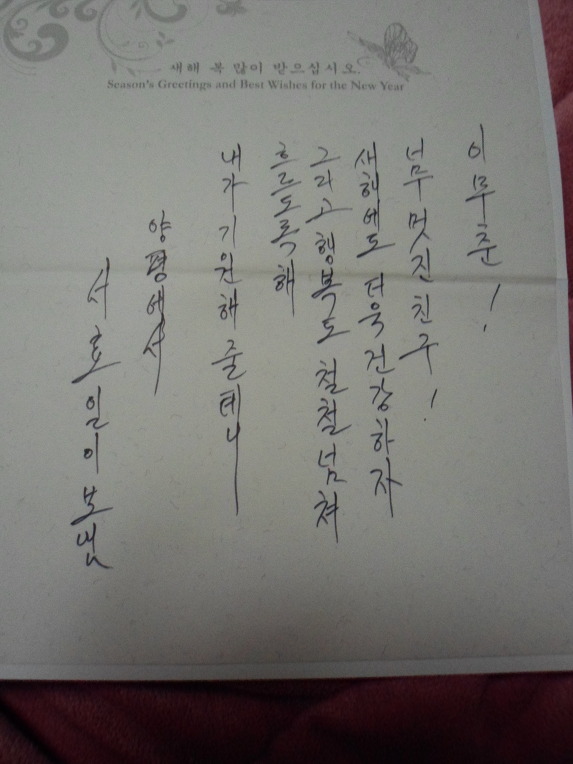 새해 복 많이 받으십시오
Season's Greetings and Best Wishes for the New Year
이무춘!
넘무 멋진 친구!
새해에도 더욱 건강하자
그라고 행복도 철철 넘쳐
흐르도록 해
내가 기원해 줄테니
양평에서
서효일이 보냄